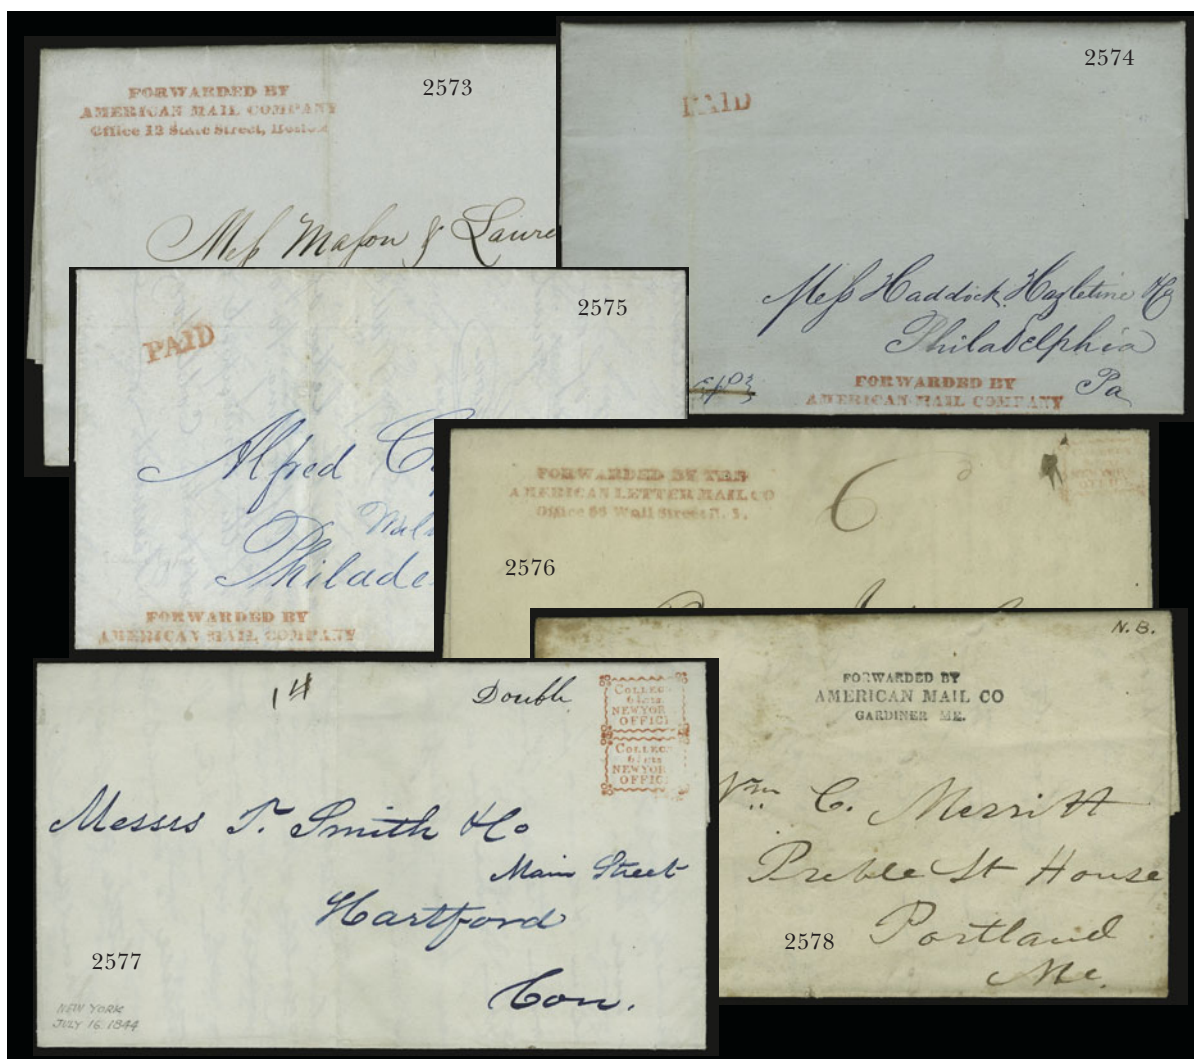 2573
FORWARDED BY
AMERICAN MAIL COMPANY
Office 12 State Street, Boston
Mess Mason & Laure
2574
PAID
Mess Haddock, Hazletine & Co
Philadelphia
Pa
FORWARDED BY
AMERICAN MAIL COMPANY
2575
PAID
Alfred C
Philade
FORWARDED BY
AMERICAN MAIL COMPANY
FORWARDED BY THE
AMERICAN LETTER MAIL CO
Office 56 Wall Street N. Y.
6
2576
N.B.
FORWARDED BY
AMERICAN MAIL CO
GARDINER ME.
Wm C. Merritt
Preble St House
Portland
Me.
2578
14
Double
COLLECT
6 cts
NEWYOR
OFFIC
COLLECT
6 cts
NEWYOR
OFFIC
Messrs T. Smith & Co
Main Street
Hartford
Con.
2577
NEW YORK
JULY 16 1844